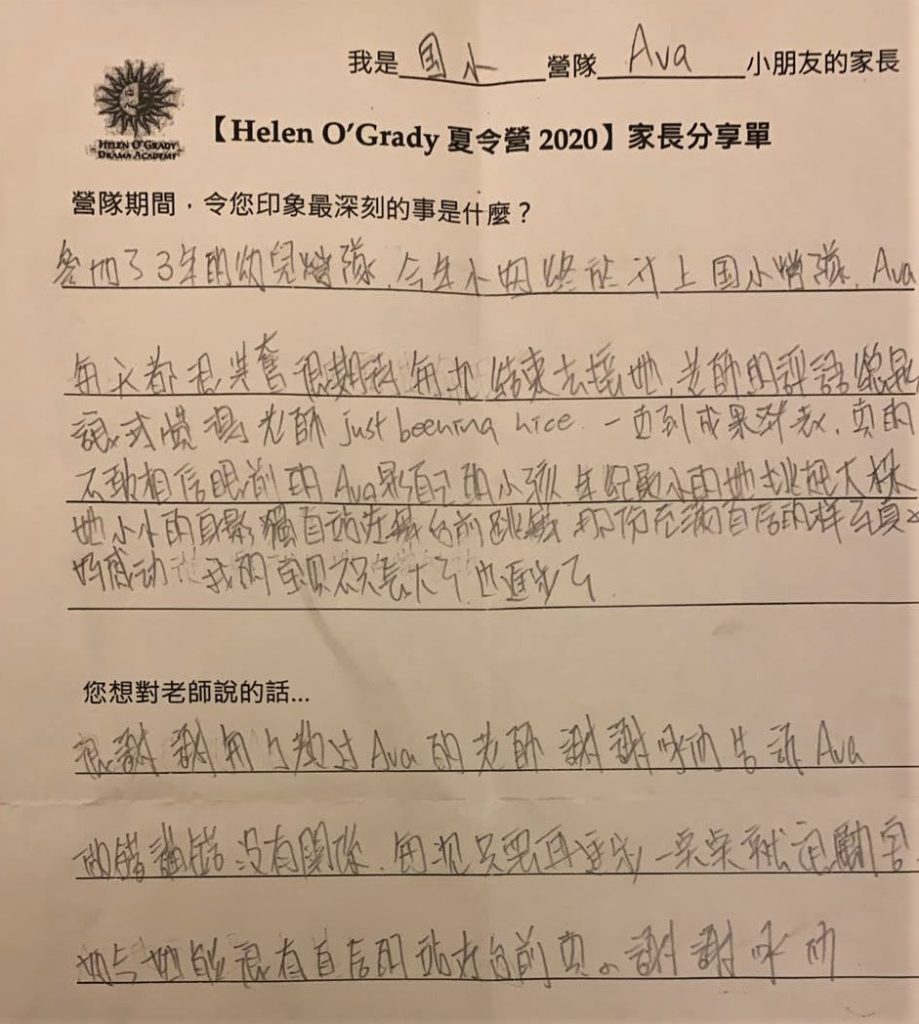 我是 国小 營隊 Ava 小朋友的家長
HELEN O'GRADY
DRAMA ACADEMY
【Helen O'Grady 夏令營 2020】家長分享單
營隊期間，令您印象最深刻的事是什麼？
參加了3年的幼兒營隊，今年小妞終於升上国小營隊，Ava
每天都很興奮很期待每次結束去接她，老師的評語總是
讓我懷疑老師 just beening nice 一直到成果發表，真的
不敢相信眼前的Ava是自己的小孩 年紀最小的她
她小小的身影獨自站在舞台前跳舞 那份充滿自信的样子真的
好感动 我的宝貝不只長大了也進步了
您想對老師說的話...
很謝謝每个教过Ava的老師 謝謝你们告訴Ava
做錯講錯沒有關係，每次只要再進步一点点就
她能很有自信的站在台前 謝謝你们